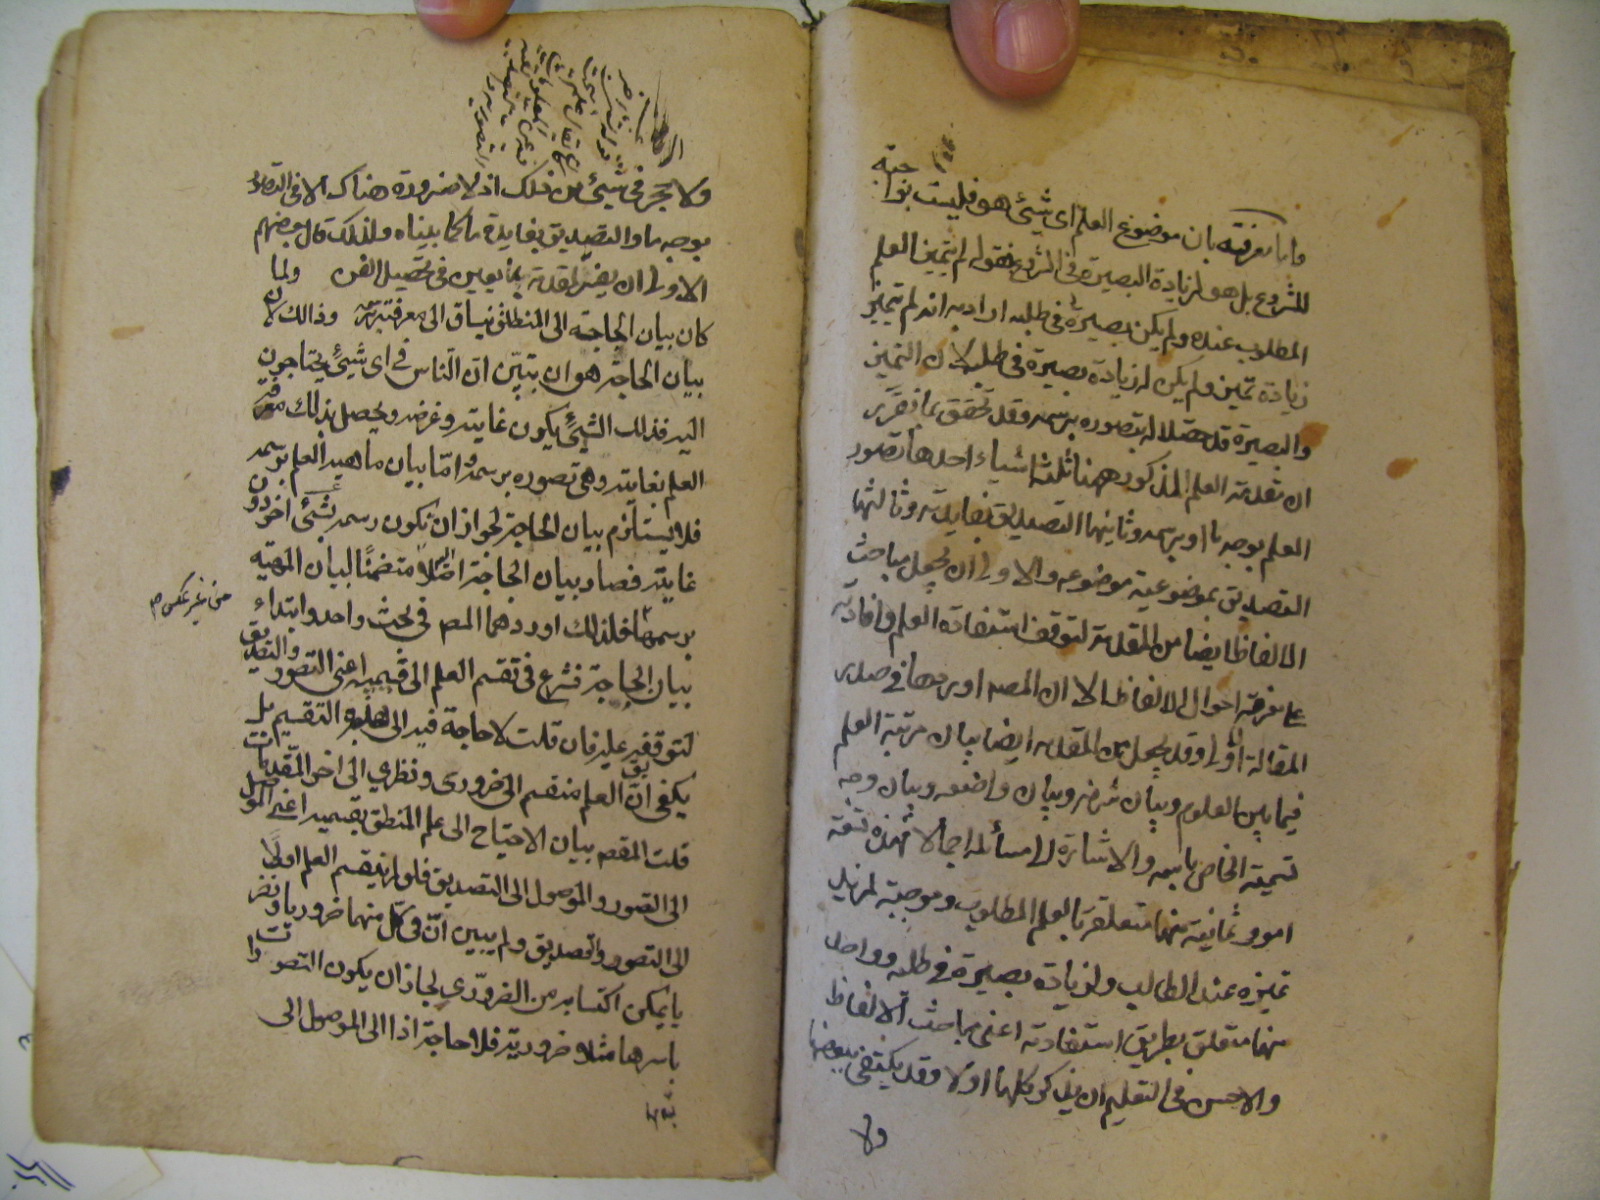 واما معرفته بان موضوع العلم اى شيئ هو فليست بواجبة
للشروع بل هو لزيادة البصيرة فى الشروع فنقول لم يتميز العلم
المطلوب عنده ولم يكن بصيرة فى طلبه اراد به انه لم تتميز
زيادة تميز ولم يكن له زيادة بصيرة فى طلبه لان التميز
والبصيرة قد حصلا له بتصوره برسمه وقد تحقق بما تقرر
ان مقدمة العلم المذكور ههنا ثلثة اشياء احدها تصور
العلم بوجه ما او برسمه وثانيها التصديق بفايدته وثالثها
التصديق بموضوعية موضوعه والاولى ان يجعل مباحث
الالفاظ ايضا من المقدمة لتوقف استفادة العلم وافادته
على معرفة احوال الالفاظ الا ان المصـ اوردها فى صدر
المقالة الاولى وقد يجعل من المقدمة ايضا بيان مرتبة العلم
فيما بين العلوم وبيان شرفه وبيان واضعه وبيان وجه
تسميته الخاص باسمه والاشارة الى مسائله اجمالا فهذه تسعة
امور ثمانية منها متعلقة بالعلم المطلوب وموجبة لمزيد
تميزه عند الطالب ولزيادة بصيرة فى طلبه وواحد
منها متعلق بطريق استفادته اعنى مباحث الالفاظ
والاحسن فى التعليم ان يذكر كلها اولا وقد يكتفى ببعضها
ولا
ولا حجر فى شيئ من ذلك اذ لا ضرورة هناك الا فى التصور
بوجه ما والتصديق بفايدة ما كما بيناه ولذلك قال بعضهم
الاولى ان يفسر المقدمة بما يعين فى تحصيل الفن ولما
كان بيان الحاجة الى المنطق ينساق الى معرفته برسمه وذالك لان
بيان الحاجة هو ان يتبين ان الناس فى اى شيئ يحتاجون
اليه فذلك الشيئ يكون غايته وغرضه ويحصل بذلك معرفة
العلم بغايته وهى تصوره برسمه واما بيان ماهية العلم برسمه
فلا يستلزم بيان الحاجة لجواز ان تكون رسمه بشيئ اخر دون
غايته فصار بيان الحاجة اصلا متضمنا لبيان المهية
برسمها فلذلك اوردهما المصـ فى بحث واحد وابتداء
من غير عكس م
بيان الحاجة فشرع فى تقسم العلم الى قسميه اعنى التصور والتصديق
لتوقفه عليه فان قلت لا حاجة فيه الى هذه التقسيم بل
يكفى ان يق العلم منقسم الى ضرورى ونظرى الى اخر المقدمات
قلت المقصـ بيان الاحتياج الى علم المنطق بقسميه اعنى الموصل
الى التصور والموصل الى التصديق فلو لم ينقسم العلم اولا
الى التصور والتصديق ولم يبين ان فى كل منهما ضروريا ونظريا
يمكن اكتسابه من الضرورى لجاز ان يكون التصورات
باسرها مثلا ضرورية فلا حاجة اذا الى الموصل الى